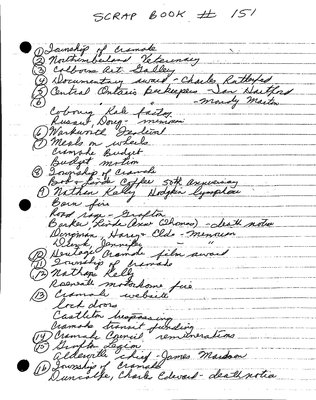 SCRAP BOOK # 151
① Township of Cramahe
② Northumberland Veterinary
③ Colborne Art Gallery
④ Documentary award - Charles
⑤ Central Ontario Beekeepers - Ian
⑥ " - Mandy Martin
Cobourg
Russan, Doug - memoriam
⑥ Warkworth
⑦ Meals on wheels
Cramahe Budget
Budget motion
⑧ Township of Cramahe
Coffee 50th Anniversary
⑨ Nathan Kelly Hodgkin lymphoma
Barn fire
Road rage - Grafton
Barker, (Thomas) - death notice
Dingman, Harry - Obo - Memoriam
Lloyd, Jennifer "
⑩ Heritage Cramahe film award
⑪ Township of Cramahe
⑫ Nathan Kelly
Roseneath motorhome fire
⑬ Cramahe website
lock doors
Castleton trespassing
Cramahe transit funding
⑭ Cramahe Council remunerations
⑮ Grafton Legion
Alderville chief - James Marsden
⑯ Township of Cramahe
Duncalfe, Charles Edward - death notice